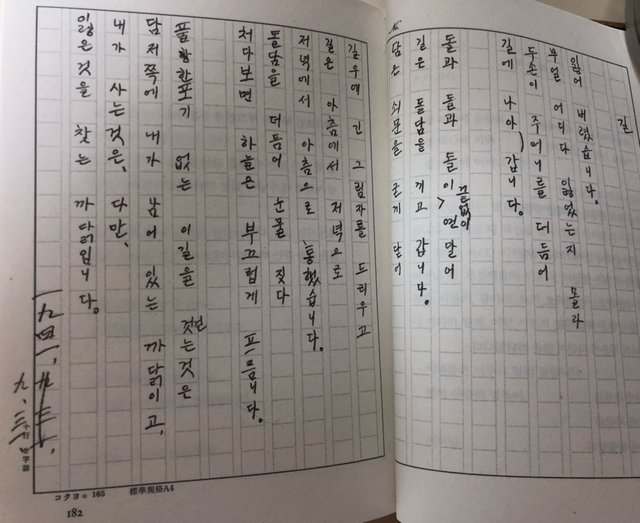 길
잃어 버렸습니다.
무얼 어디다 잃었는지 몰라
두손이 주머니를 더듬어
길에 나아갑니다.
돌과 돌과 돌이 끝없이 연달어
길은 돌담을 끼고 갑니다.
담은 쇠문을 굳게 닫어
길우에 긴 그림자를 드리우고
길은 아츰에서 저녁으로
저녁에서 아츰으로 통했습니다.
돌담을 더듬어 눈물 짓다
처다보면 하늘은 부끄럽게 프름니다.
풀 한포기 없는 이길을 걷는것은
담저쪽에 내가 남어 있는 까닭이고,
내가 사는것은, 다만,
잃은것을 찾는 까닭입니다.
一九四一,
九, 三一
コクヨ 165 標準規格A4
182